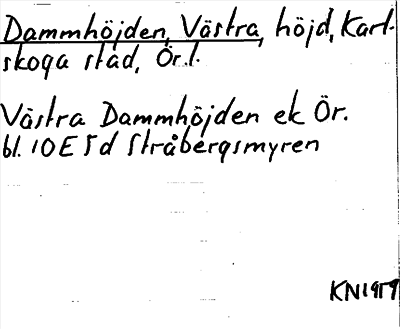 Dammhöjden, Västra, höjd, Karl-
skoga stad, Ör.l.
Västra Dammhöjden ek Ör.
bl. 10E 5d Stråbergsmyren
KN1959